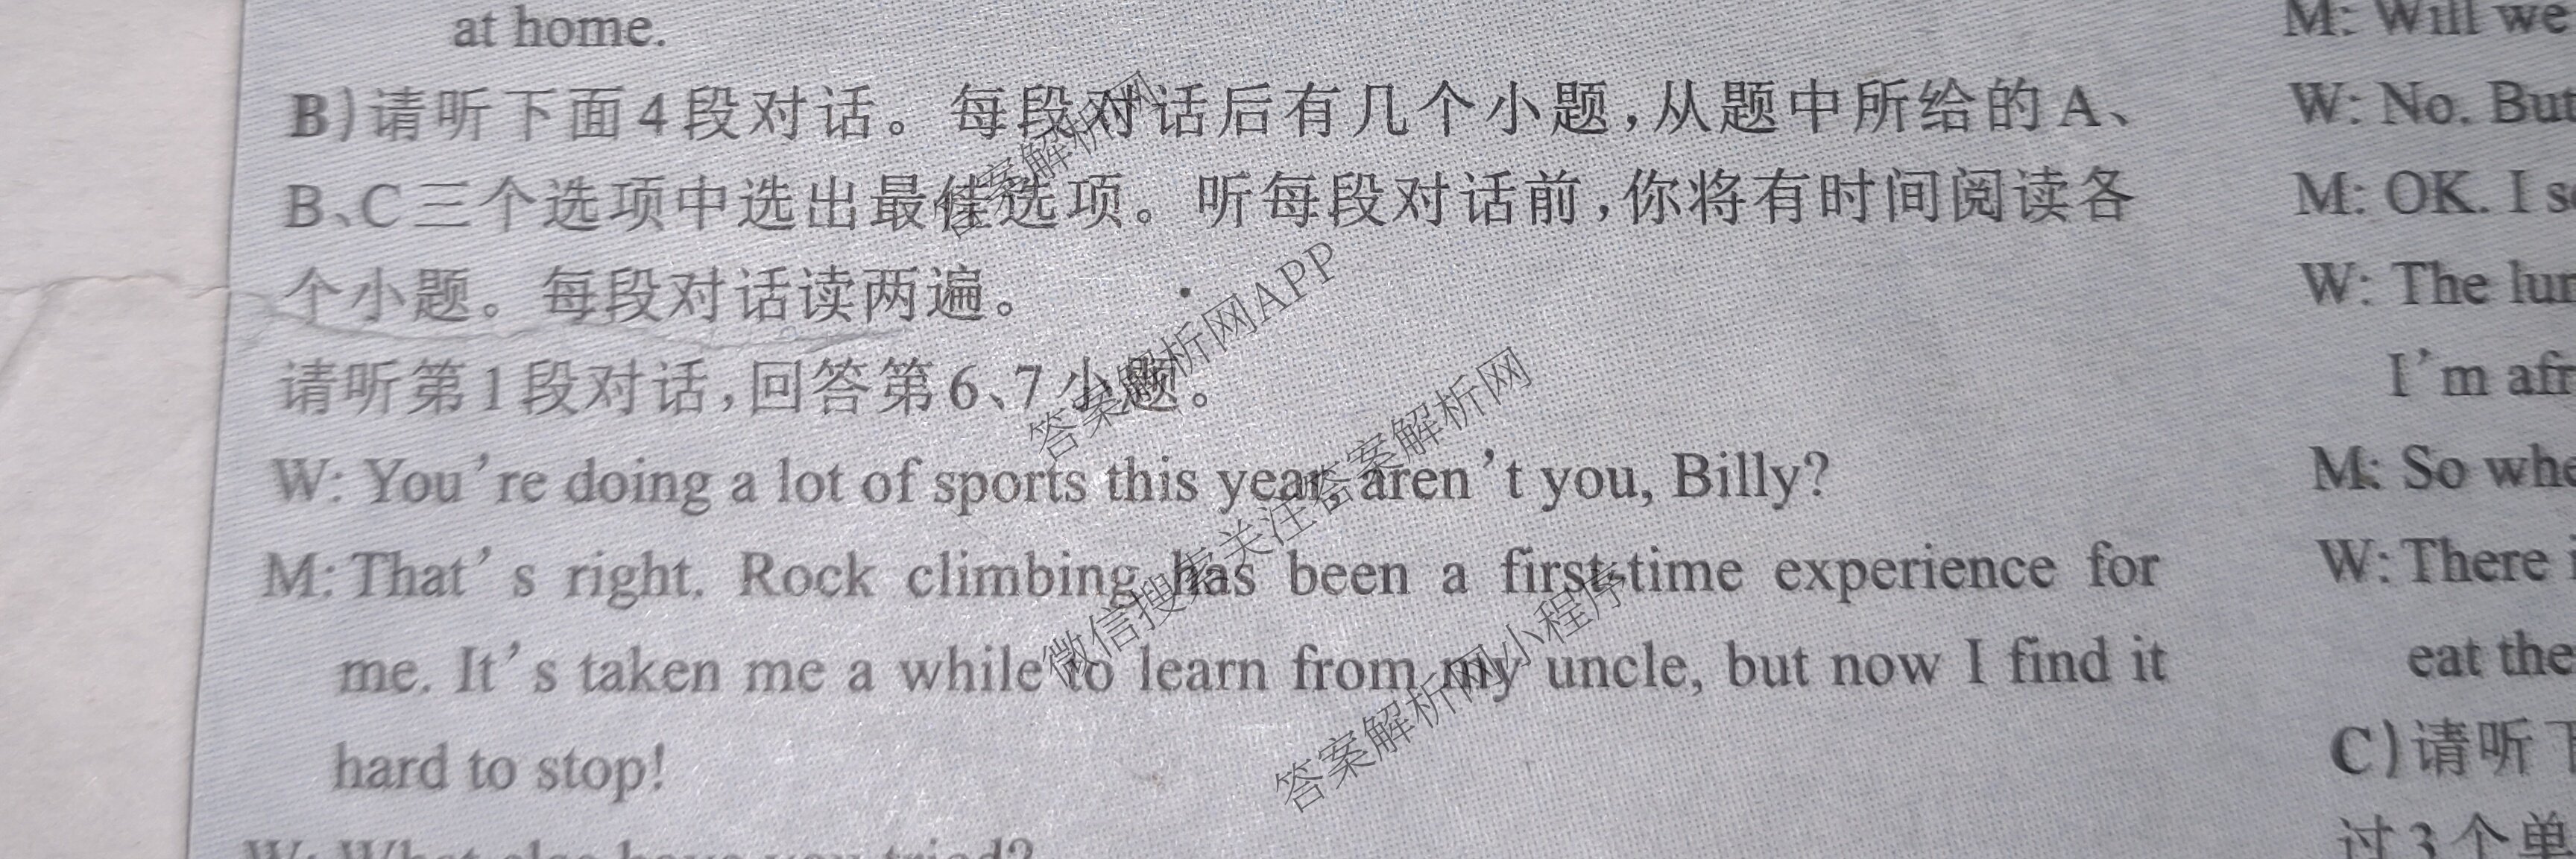 at home.
B)请听下面4段对话。每段对话后有几个小题,从题中所给的A、
B、C三个选项中选出最佳选项。听每段对话前,你将有时间阅读各
个小题。每段对话读两遍。
请听第1段对话,回答第6、7小题。
W: You're doing a lot of sports this year, aren't you, Billy?
M: That's right. Rock climbing has been a first-time experience for
me. It's taken me a while to learn from my uncle, but now I find it
hard to stop!
W: What else have you tried?
M: Will we
W: No. But
M: OK. I s
W: The lun
I'm afr
M: So whe
W: There i
eat the
C)请听下
过3个单
答案解析网
答案解析网APP
微信搜索关注答案解析网
答案解析网小程序